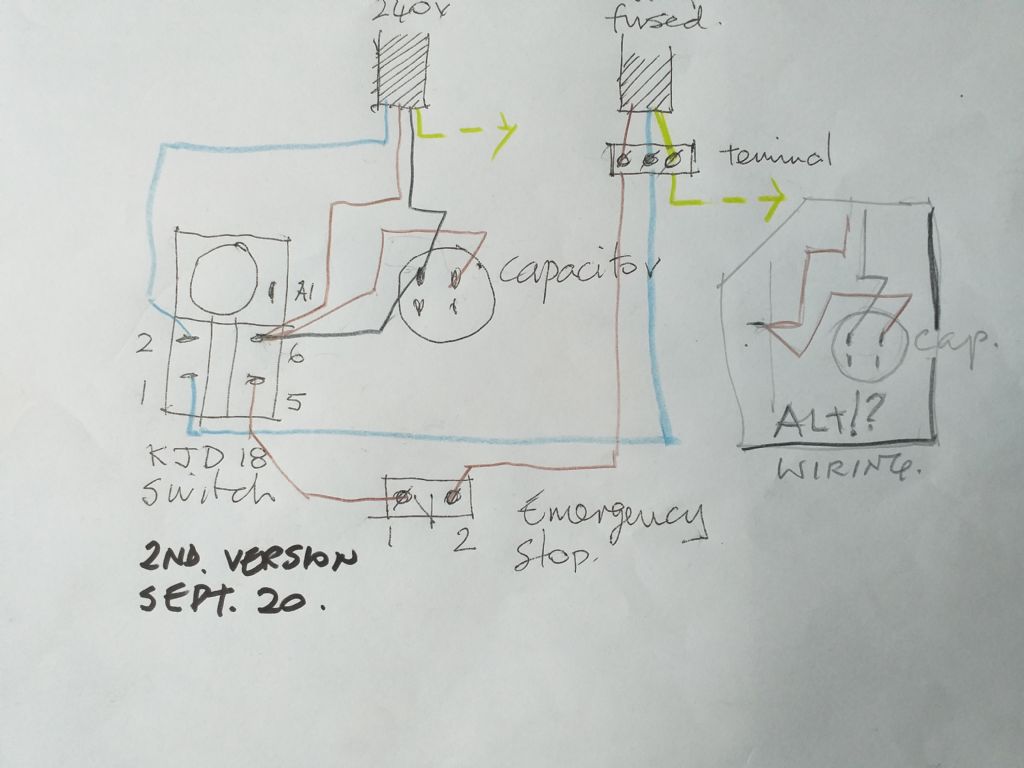 240v
fused.
terminal
capacitor
A1
2
6
1
5
cap.
ALT!?
WIRING.
KJD 18
Switch
1
2
Emergency
Stop.
2ND. VERSION
SEPT. 20.